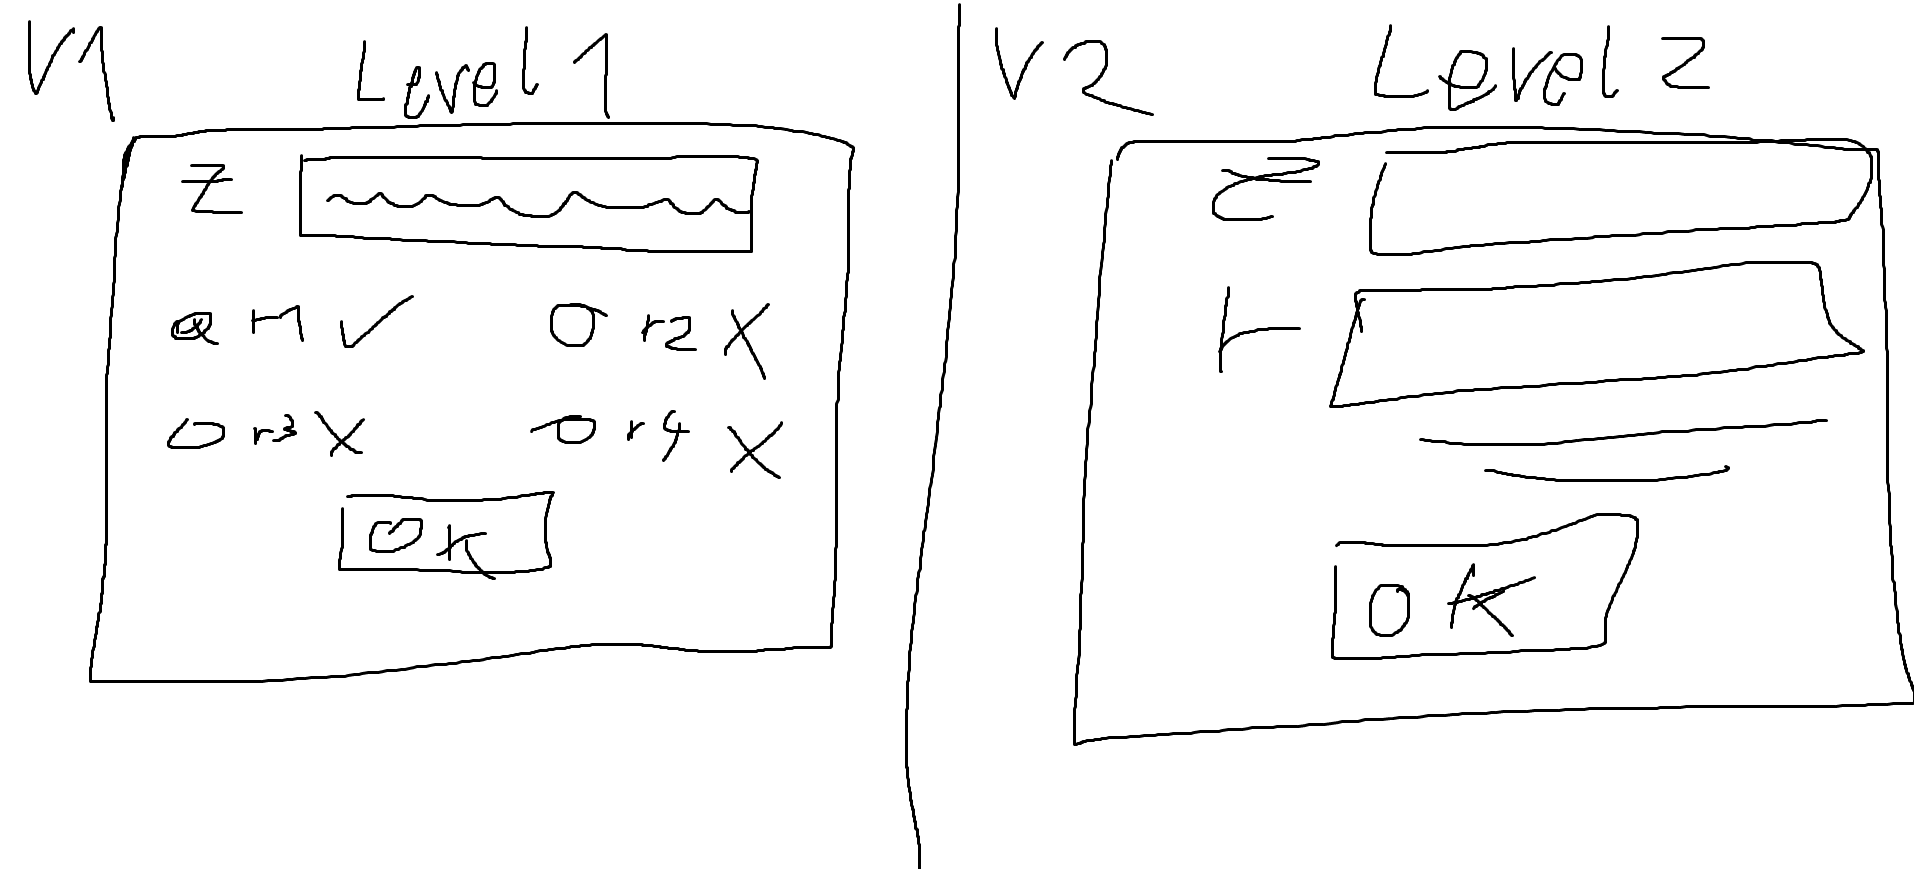 V1
Level 1
Z
r1 ✓
r2 X
r3 X
r4 X
OK
V2
Level 2
Z
r
OK